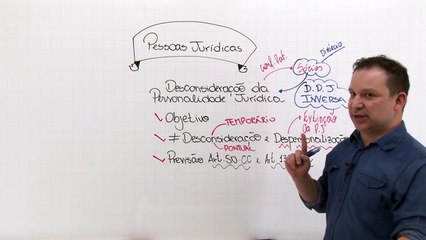 Pessoas Jurídicas
Conf. Pat.
Sócios
Desconsideração da
Personalidade Jurídica
D.P.J
INVERSA
✓ Objetivo
TEMPORÁRIO
Extinção
da P.J
✓ ≠ Desconsideração e Despersonalização
PONTUAL
✓ Previsão Art. 50 CC e Art. 13